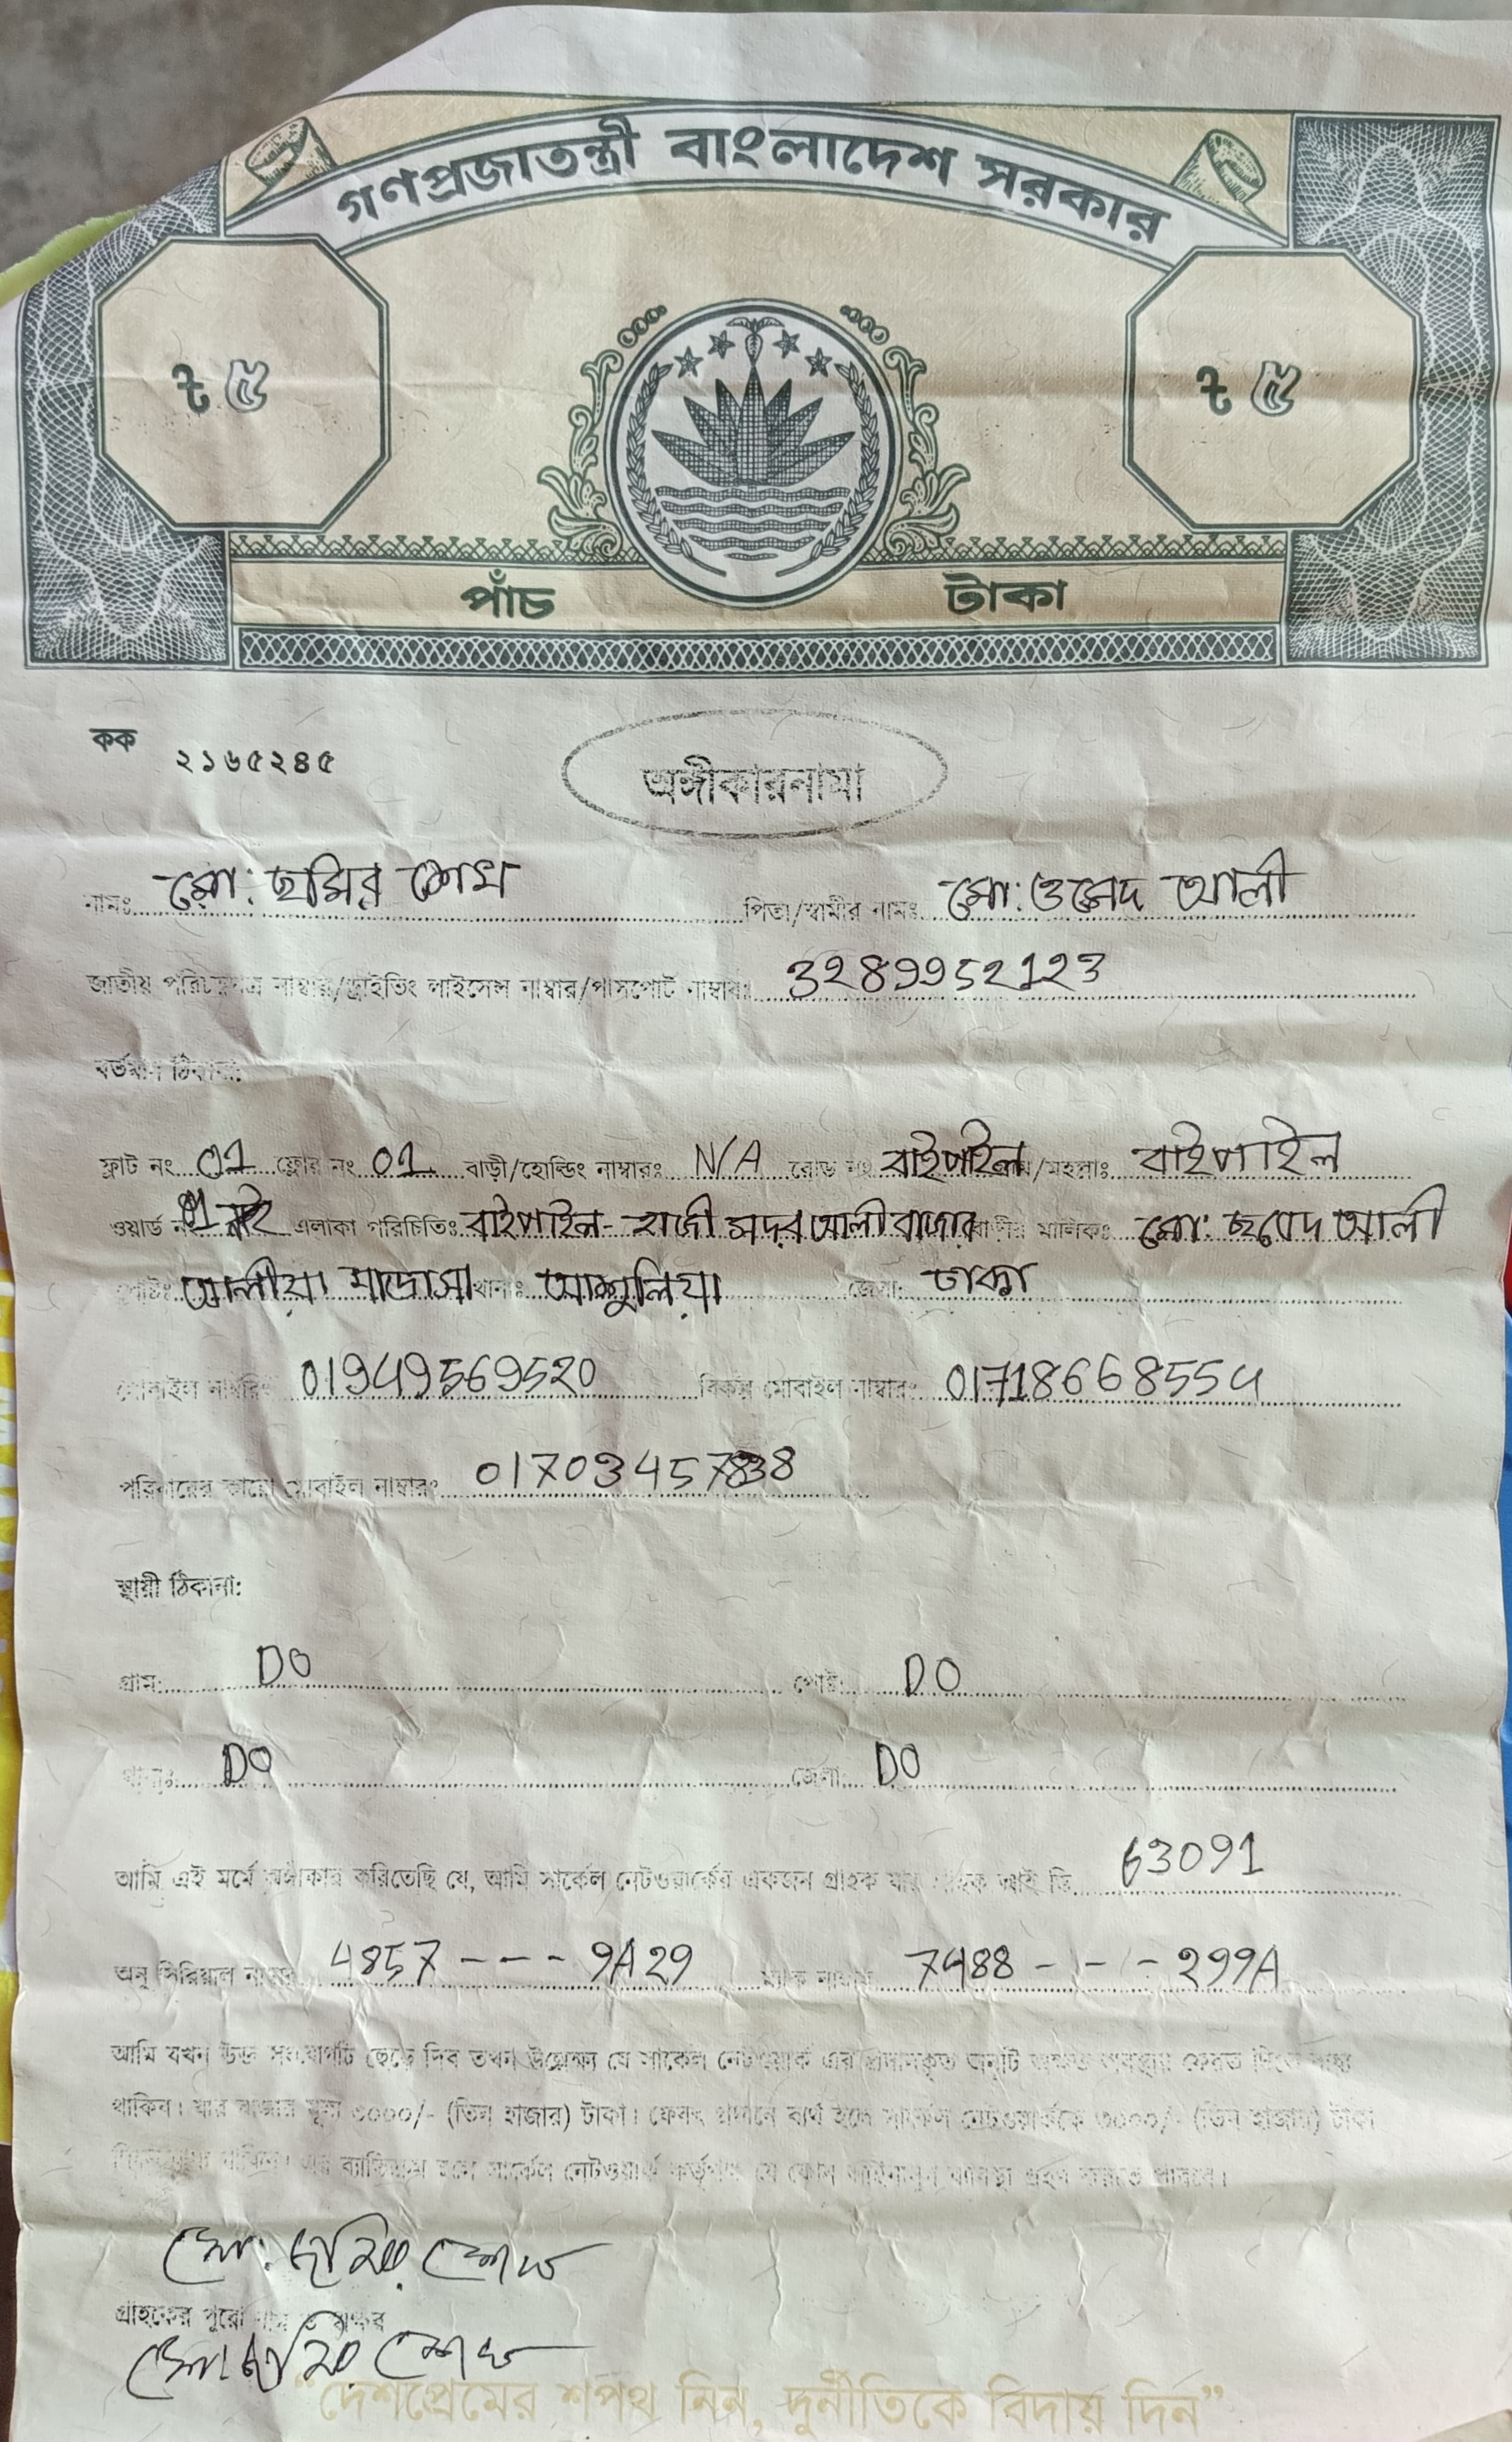 গণপ্রজাতন্ত্রী বাংলাদেশ সরকার
৳ ৫ ৳ ৫
পাঁচ টাকা
কক ২১৬৫২৪৫
অঙ্গীকারনামা
নামঃ মো: ছমির শেখ পিতা/স্বামীর নামঃ মো: ওমেদ আলী
জাতীয় পরিচয়পত্র নাম্বার/ড্রাইভিং লাইসেন্স নাম্বার/পাসপোর্ট নাম্বারঃ 3289952123
বর্তমান ঠিকানা:
ফ্লাট নং 01 ফ্লোর নং 01 বাড়ী/হোল্ডিং নাম্বারঃ N/A রোড নং বাইপাইল /মহল্লাঃ বাইপাইল
ওয়ার্ড নং এলাকা পরিচিতিঃ বাইপাইল- হাজী সদর আলী বাজার মালিকঃ মো: ছবেদ আলী
পোষ্টঃ আলীয়া মাদ্রাসা থানাঃ আশুলিয়া জেলা: ঢাকা
মোবাইল নাম্বারঃ 01949569520 বিকল্প মোবাইল নাম্বারঃ 01718668554
পরিবারের কারো মোবাইল নাম্বারঃ 01703457838
স্থায়ী ঠিকানা:
গ্রাম: DO পোষ্ট: DO
থানাঃ DO জেলা: DO
আমি এই মর্মে অঙ্গীকার করিতেছি যে, আমি সার্কেল নেটওয়ার্কের একজন গ্রাহক যার গ্রাহক আই ডি 63091
অনু সিরিয়াল নাম্বার 4857 - - - 9A29 ম্যাক নাম্বার 7488 - - - 299A
আমি যখন উক্ত সংযোগটি ছেড়ে দিব তখন উল্লেক্ষ্য যে সার্কেল নেটওয়ার্ক এর প্রদানকৃত অনুটি অক্ষত অবস্থায় ফেরত দিতে বাধ্য
থাকিব। যার বাজার মূল্য ৩০০০/- (তিন হাজার) টাকা। ফেরৎ প্রদানে ব্যর্থ হলে সার্কেল নেটওয়ার্ককে ৩০০০/- (তিন হাজার) টাকা
ব্যাতিক্রম হলে সার্কেল নেটওয়ার্ক কর্তৃপক্ষ যে কোন আইনানুগ ব্যবস্থা গ্রহণ করতে পারবে।
মো: ছমির শেখ
গ্রাহকের পুরো নাম ও স্বাক্ষর
মো: ছমির শেখ
“দেশপ্রেমের শপথ নিন, দুর্নীতিকে বিদায় দিন”